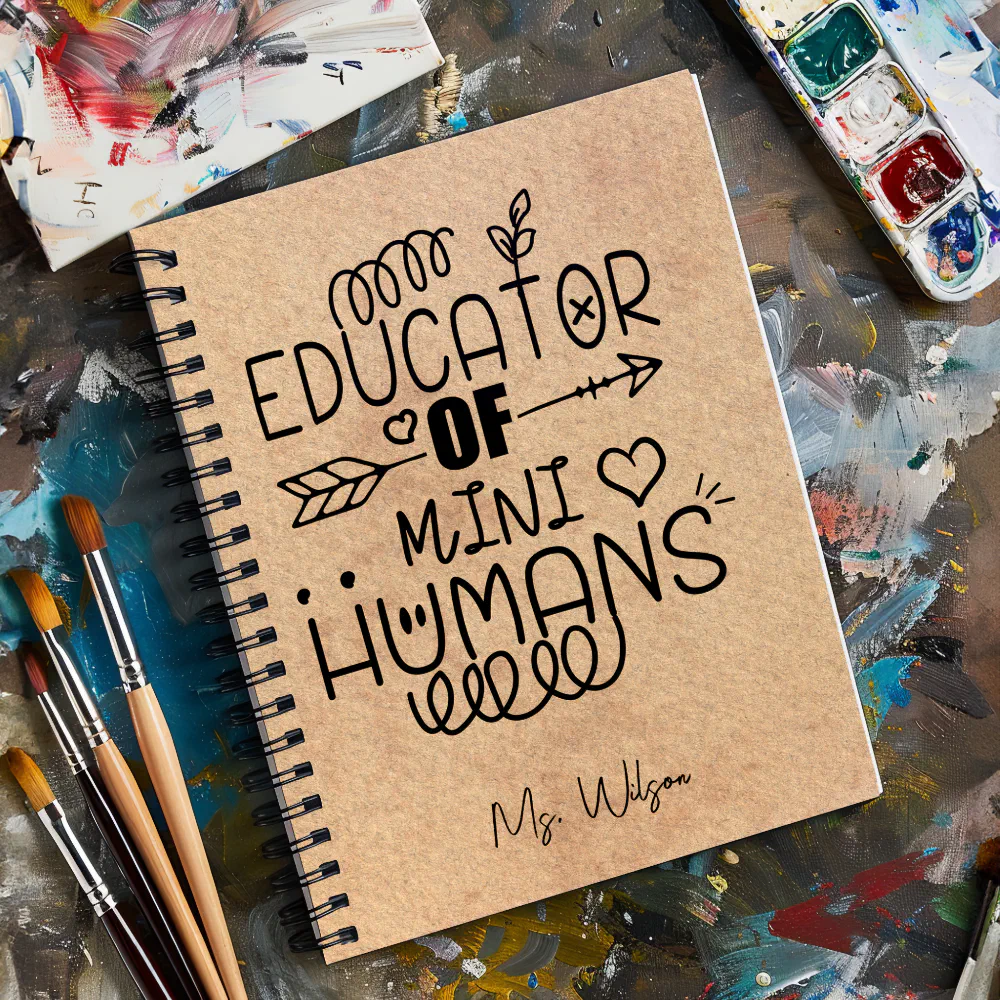 EDUCATOR
OF
MINI
HUMANS
Ms. Wilson